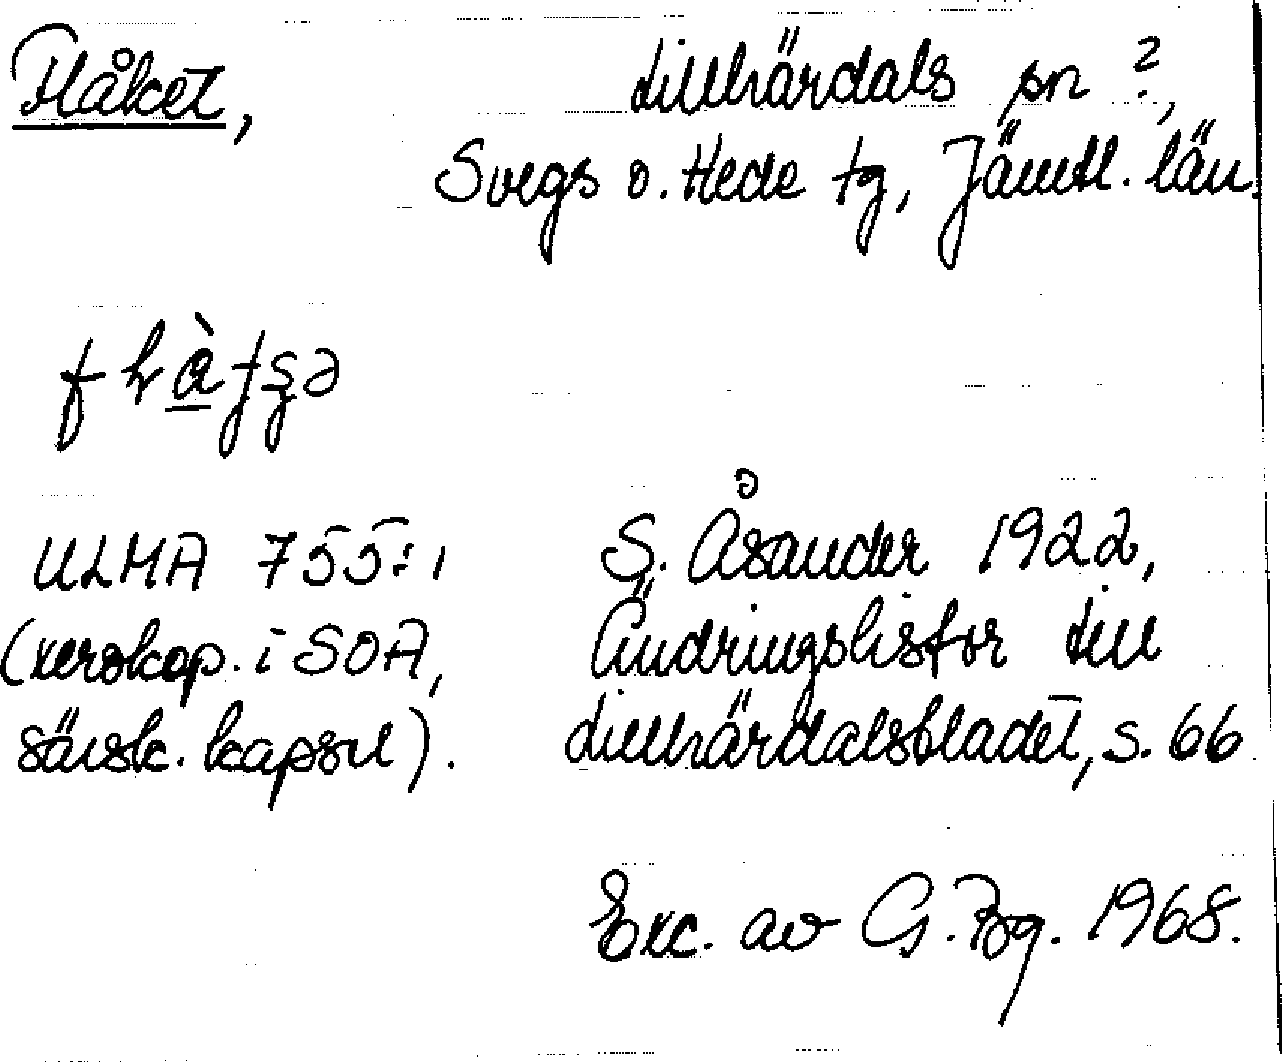 Flåket, Lillhärdals sn ?,
Svegs o. Hede tg, Jämtl. län.
ULMA 755:1 S. Åsander 1922,
(xeroxkop. i SOA, Ändringslistor till
särsk. kapsel). Lillhärdalsbladet, s. 66
Exc. av G. Bg. 1968.